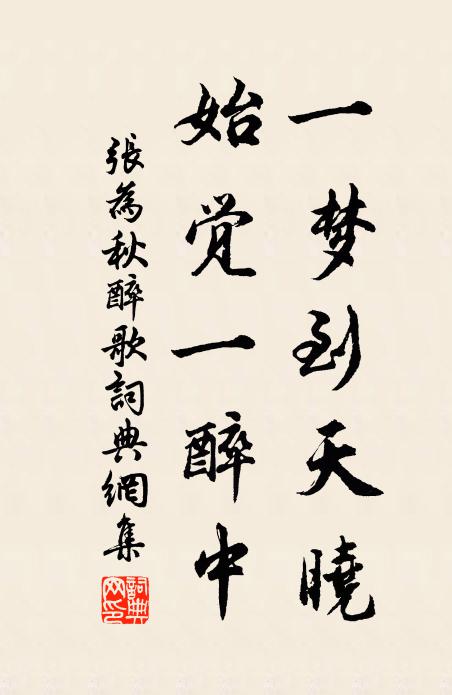 一梦到天曉
始觉一醉中
張為秋醉歌詞典網集
詞典网印